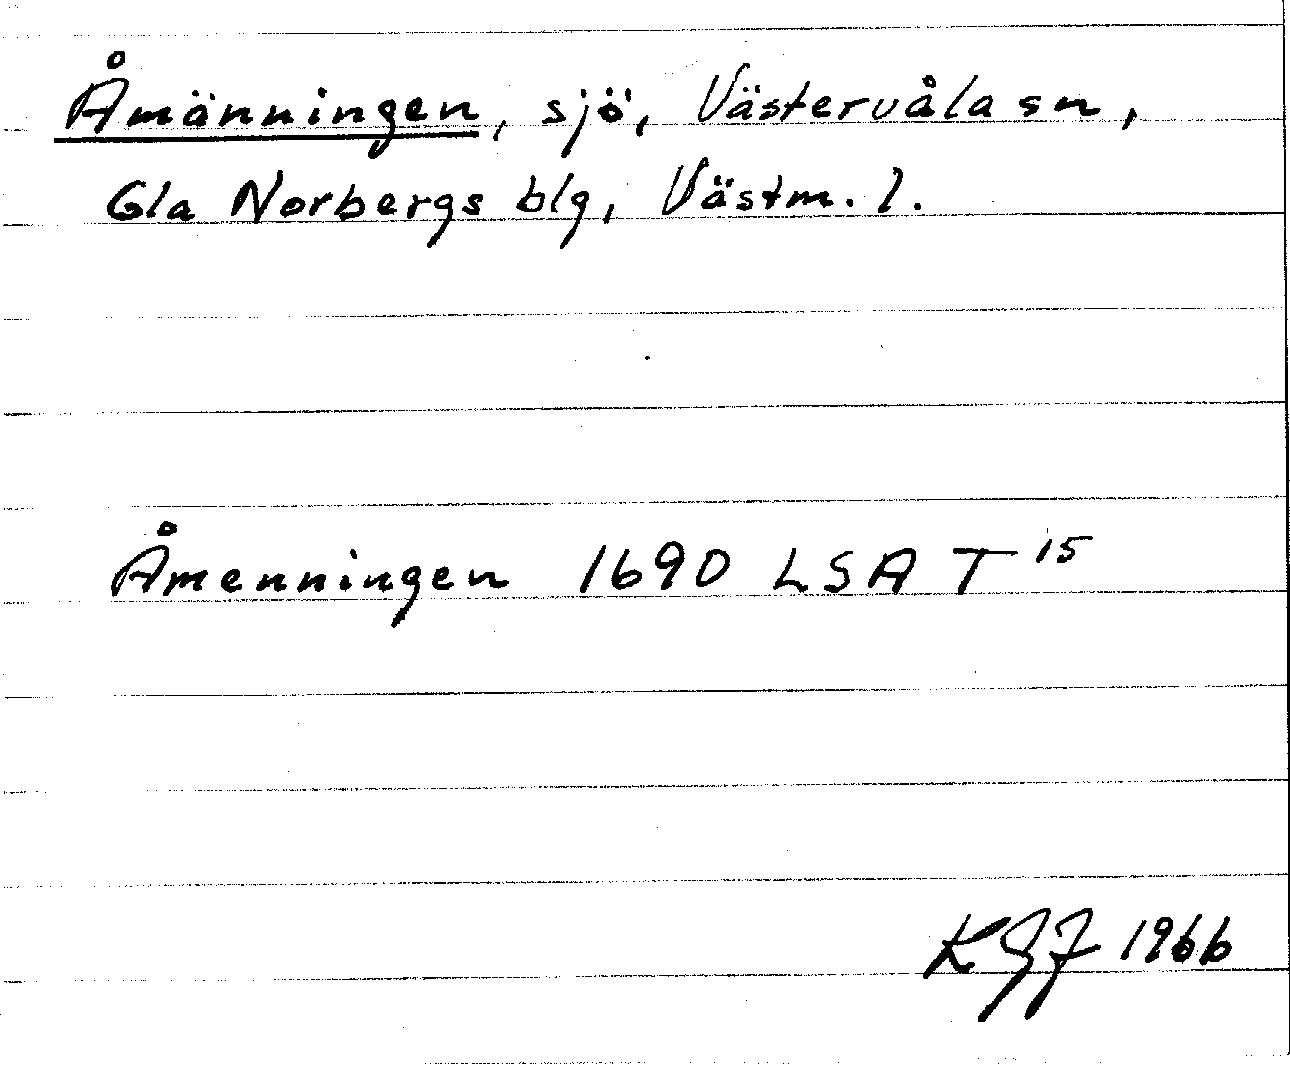 Åmänningen, sjö, Västervåla sn,
Gla Norbergs blg, Västm. l.
Åmenningen 1690 LSA T 15
1966